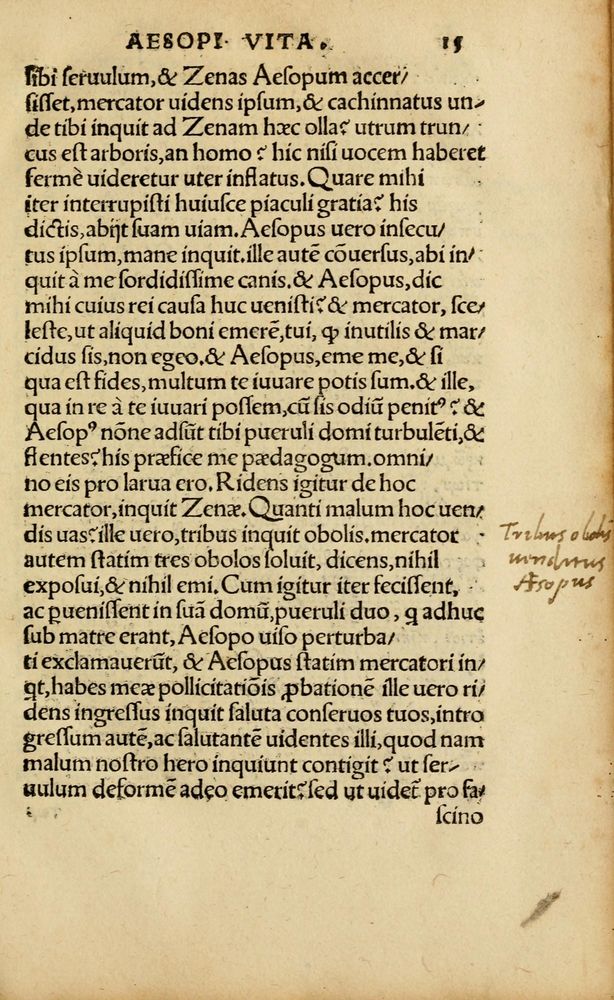 AESOPI· VITA. 15
sibi seruulum, & Zenas Aesopum accer/
sisset, mercator uidens ipsum, & cachinnatus un/
de tibi inquit ad Zenam hæc olla? utrum trun/
cus est arboris, an homo? hic nisi uocem haberet
fermè uideretur uter inflatus. Quare mihi
iter interrupisti huiusce piaculi gratia? his
dictis, abijt suam uiam. Aesopus uero insecu/
tus ipsum, mane inquit. ille autē cōuersus, abi in/
quit à me sordidissime canis. & Aesopus, dic
mihi cuius rei causa huc uenisti? & mercator, sce/
leste, ut aliquid boni emerē, tui, ꝙ inutilis & mar/
cidus sis, non egeo. & Aesopus, eme me, & si
qua est fides, multum te iuuare potis sum. & ille,
qua in re à te iuuari possem, cū sis odiū penitꝰ? &
Aesopꝰ nōne adsūt tibi pueruli domi turbulēti, &
flentes? his præfice me pædagogum. omni/
no eis pro larua ero. Ridens igitur de hoc
mercator, inquit Zenæ. Quanti malum hoc uen/
dis uas? ille uero, tribus inquit obolis. mercator
autem statim tres obolos soluit, dicens, nihil
exposui, & nihil emi. Cum igitur iter fecissent,
ac ꝑuenissent in suā domū, pueruli duo, q adhuc
sub matre erant, Aesopo uiso perturba/
ti exclamauerūt, & Aesopus statim mercatori in/
qt, habes meæ pollicitatiōis ꝓbationē ille uero ri/
dens ingressus inquit saluta conseruos tuos, intro
gressum autē, ac salutantē uidentes illi, quod nam
malum nostro hero inquiunt contigit? ut ser/
uulum deformē adeo emerit? sed ut uidet̄ pro fa/
scino
Tribus obolis
uenditus
Æsopus